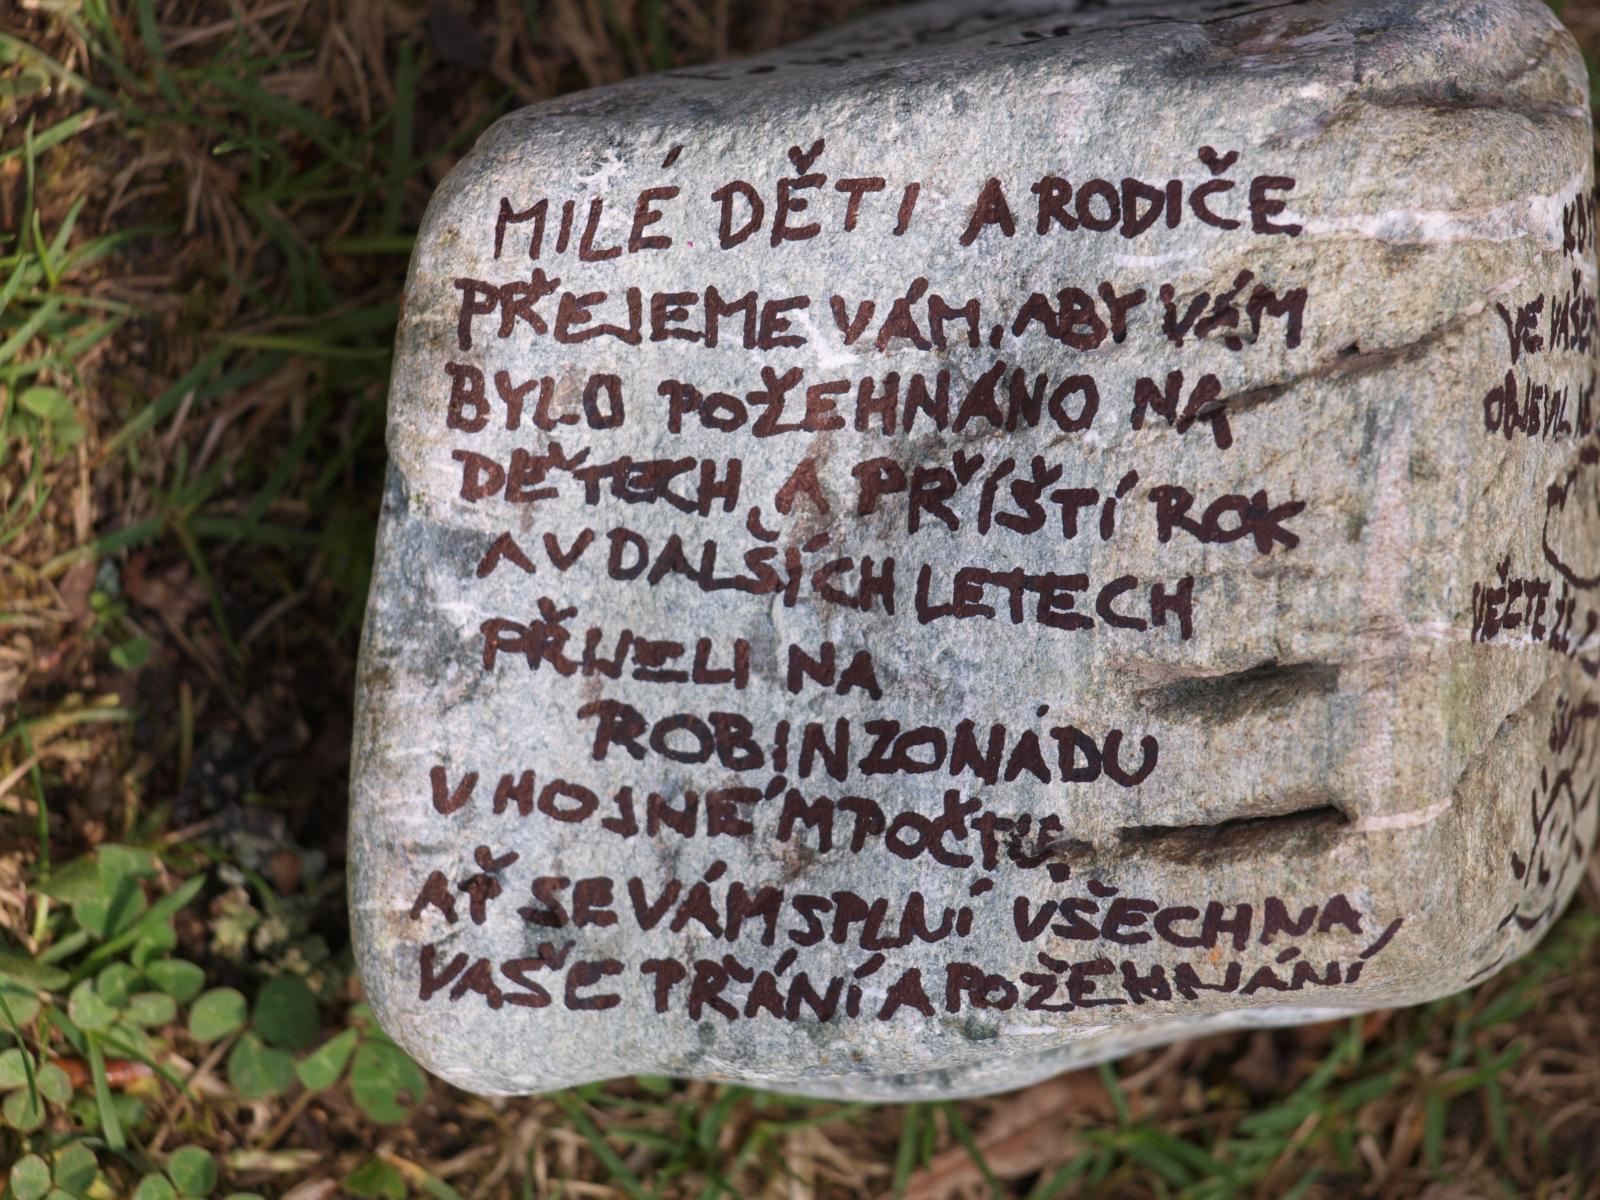 MILÉ DĚTI A RODIČE
PŘEJEME VÁM, ABY VÁM
BYLO POŽEHNÁNO NA
DĚTECH A PŘÍŠTÍ ROK
A V DALŠÍCH LETECH
PŘIJELI NA
ROBINZONÁDU
V HOJNÉM POČTU.
AŤ SE VÁM SPLNÍ VŠECHNA
VAŠE PŘÁNÍ A POŽEHNÁNÍ
VE VAŠE
OBJEVIL